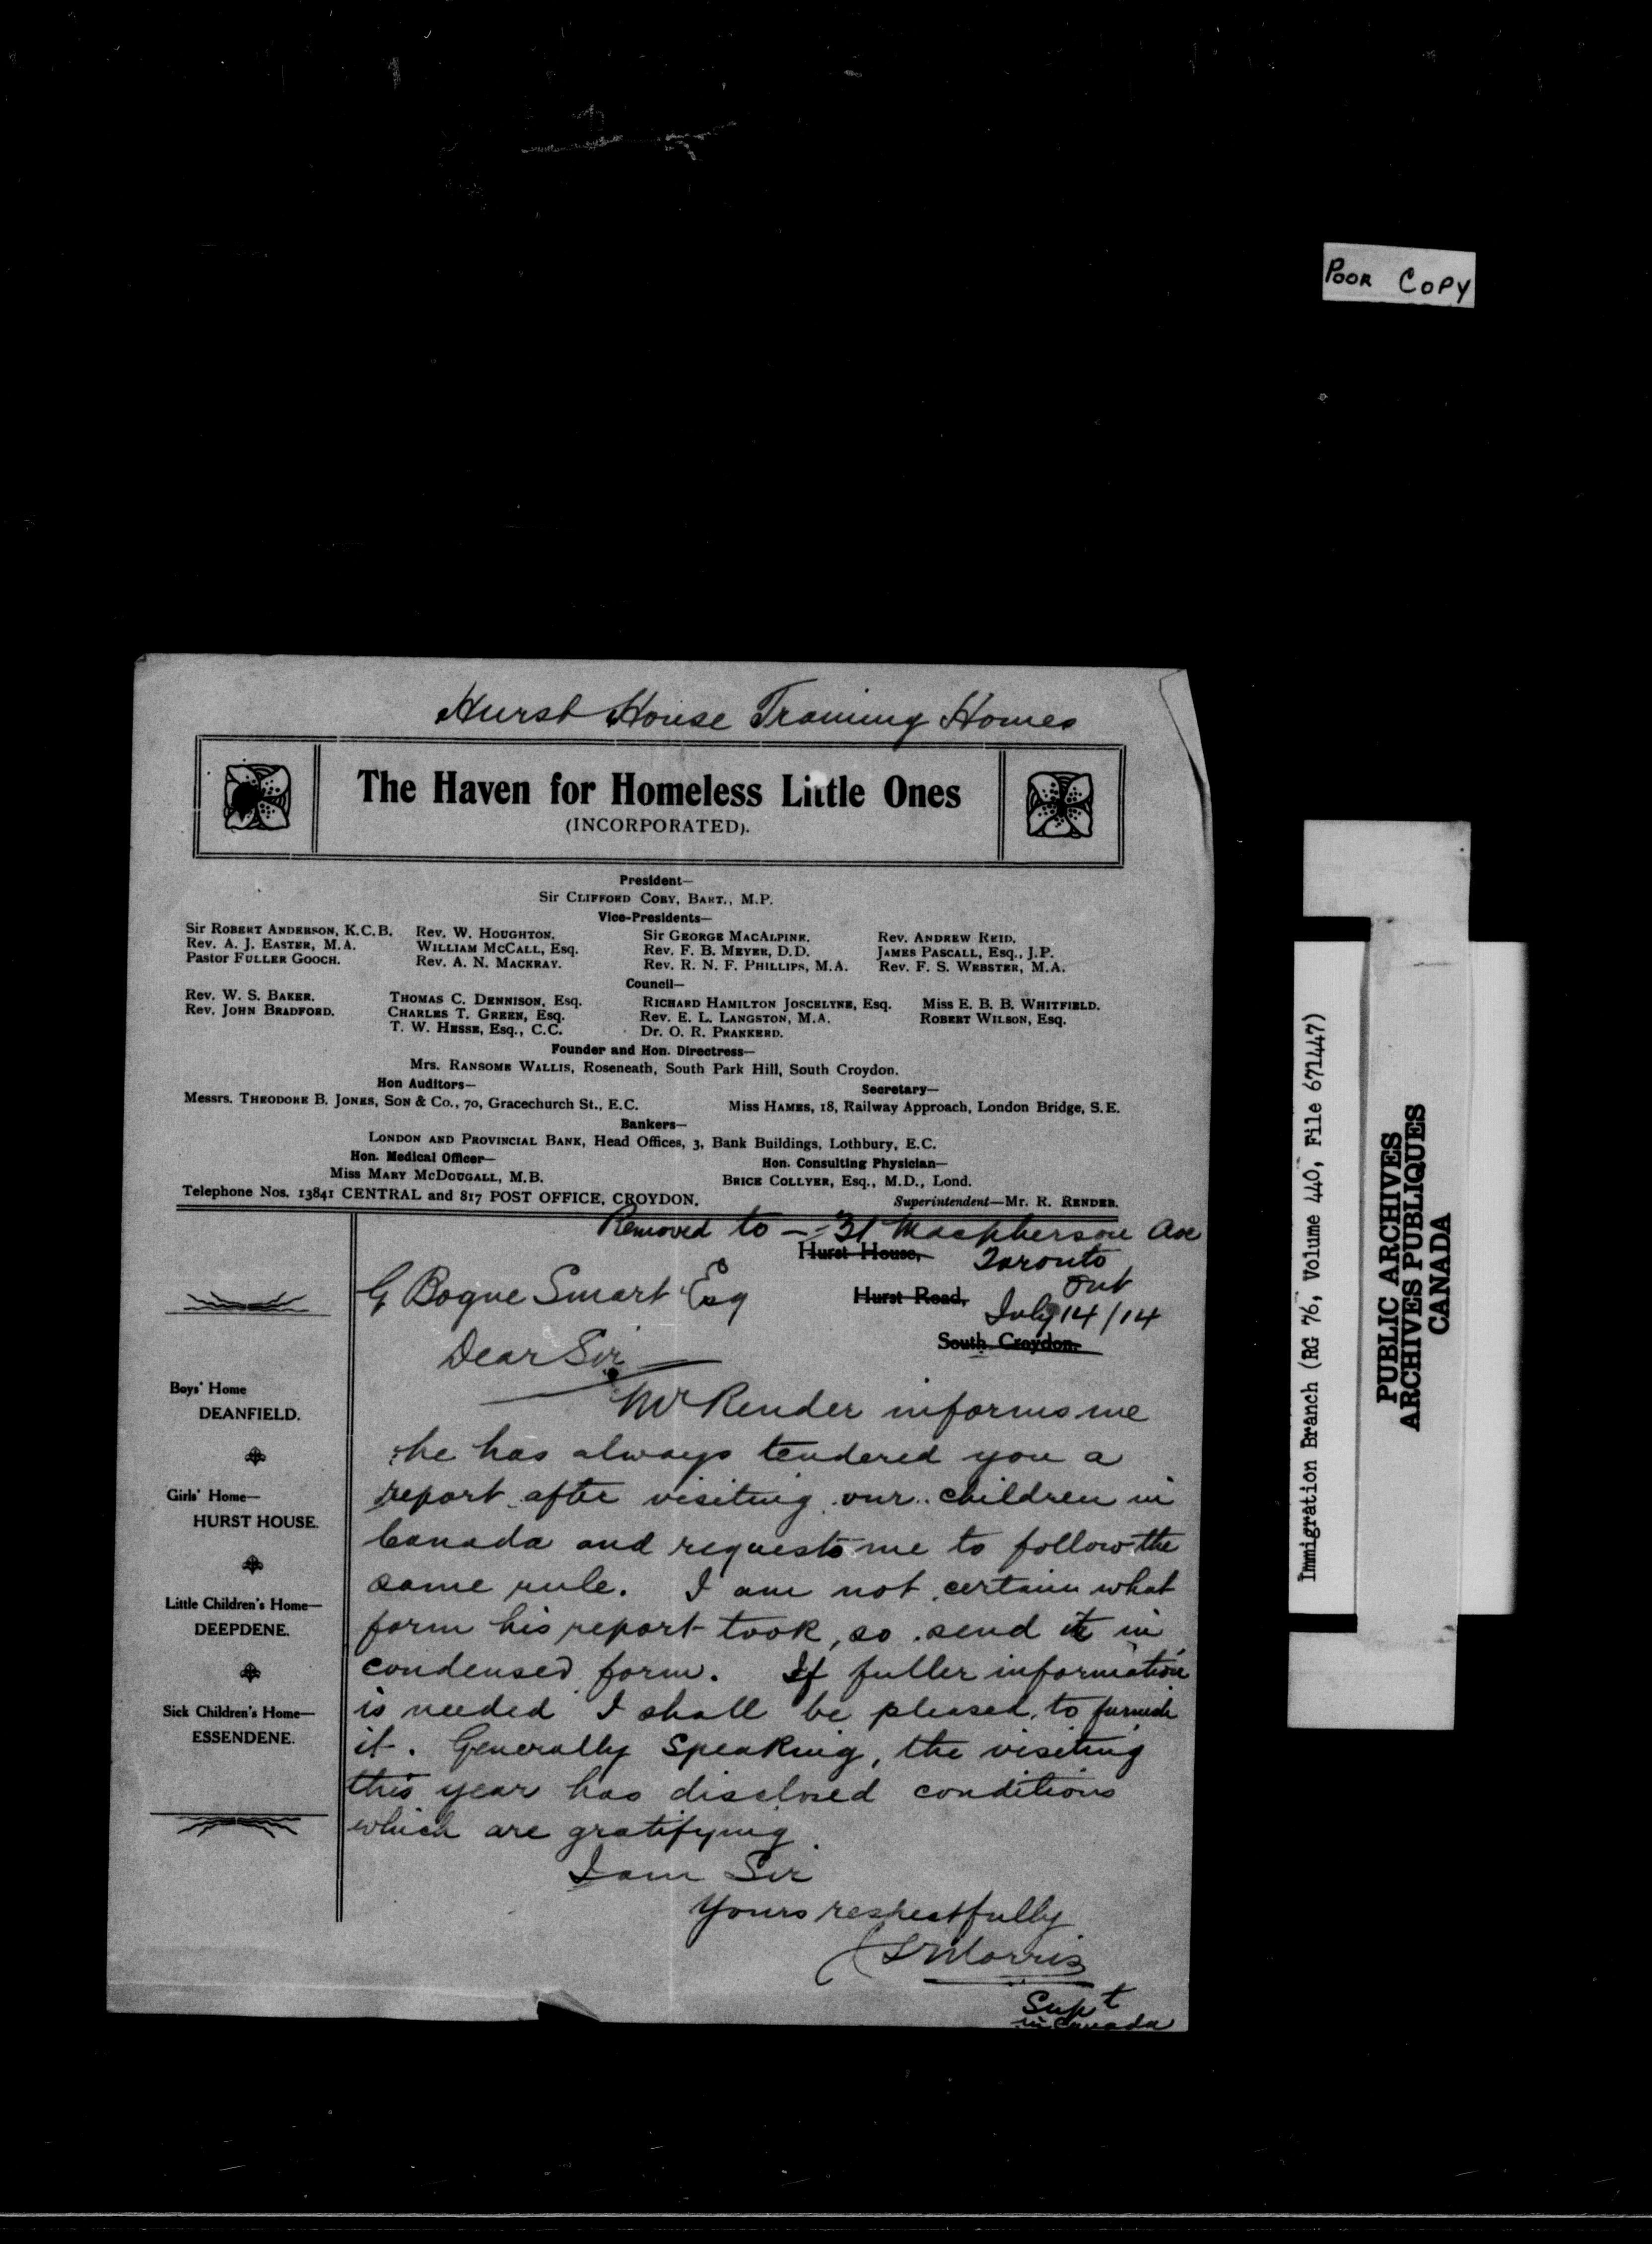 POOR COPY
Hurst House Training Homes
The Haven for Homeless Little Ones
(INCORPORATED).
President—
Sir CLIFFORD CORY, BART., M.P.
Vice-Presidents—
Sir ROBERT ANDERSON, K.C.B. Rev. W. HOUGHTON. Sir GEORGE MACALPINE. Rev. ANDREW REID.
Rev. A. J. EASTER, M.A. WILLIAM MCCALL, Esq. Rev. F. B. MEYER, D.D. JAMES PASCALL, Esq., J.P.
Pastor FULLER GOOCH. Rev. A. N. MACKRAY. Rev. R. N. F. PHILLIPS, M.A. Rev. F. S. WEBSTER, M.A.
Council—
Rev. W. S. BAKER. THOMAS C. DENNISON, Esq. RICHARD HAMILTON JOSCELYNE, Esq. Miss E. B. B. WHITFIELD.
Rev. JOHN BRADFORD. CHARLES T. GREEN, Esq. Rev. E. L. LANGSTON, M.A. ROBERT WILSON, Esq.
T. W. HESSE, Esq., C.C. Dr. O. R. PRANKERD.
Founder and Hon. Directress—
Mrs. RANSOME WALLIS, Roseneath, South Park Hill, South Croydon.
Hon Auditors— Secretary—
Messrs. THEODORE B. JONES, SON & Co., 70, Gracechurch St., E.C. Miss HAMES, 18, Railway Approach, London Bridge, S.E.
Bankers—
LONDON AND PROVINCIAL BANK, Head Offices, 3, Bank Buildings, Lothbury, E.C.
Hon. Medical Officer— Hon. Consulting Physician—
Miss MARY MCDOUGALL, M.B. BRICE COLLYER, Esq., M.D., Lond.
Telephone Nos. 13841 CENTRAL and 817 POST OFFICE, CROYDON. Superintendent—Mr. R. RENDER.
Removed to — 31 Macpherson Ave
Hurst House, Toronto
Ont
G Bogue Smart Esq Hurst Road,
July 14/14
South Croydon.
Dear Sir
Mr Render informs me
he has always tendered you a
report after visiting our children in
Canada and requests me to follow the
same rule. I am not certain what
form his report took, so send it in
condensed form. If fuller information
is needed I shall be pleased to furnish
it. Generally Speaking, the visiting
this year has disclosed conditions
which are gratifying.
I am Sir
Yours respectfully
Morris
Supt
in Canada
Boys' Home
DEANFIELD.
Girls' Home—
HURST HOUSE.
Little Children's Home—
DEEPDENE.
Sick Children's Home—
ESSENDENE.
Immigration Branch (RG 76, Volume 440, File 671447)
PUBLIC ARCHIVES
ARCHIVES PUBLIQUES
CANADA